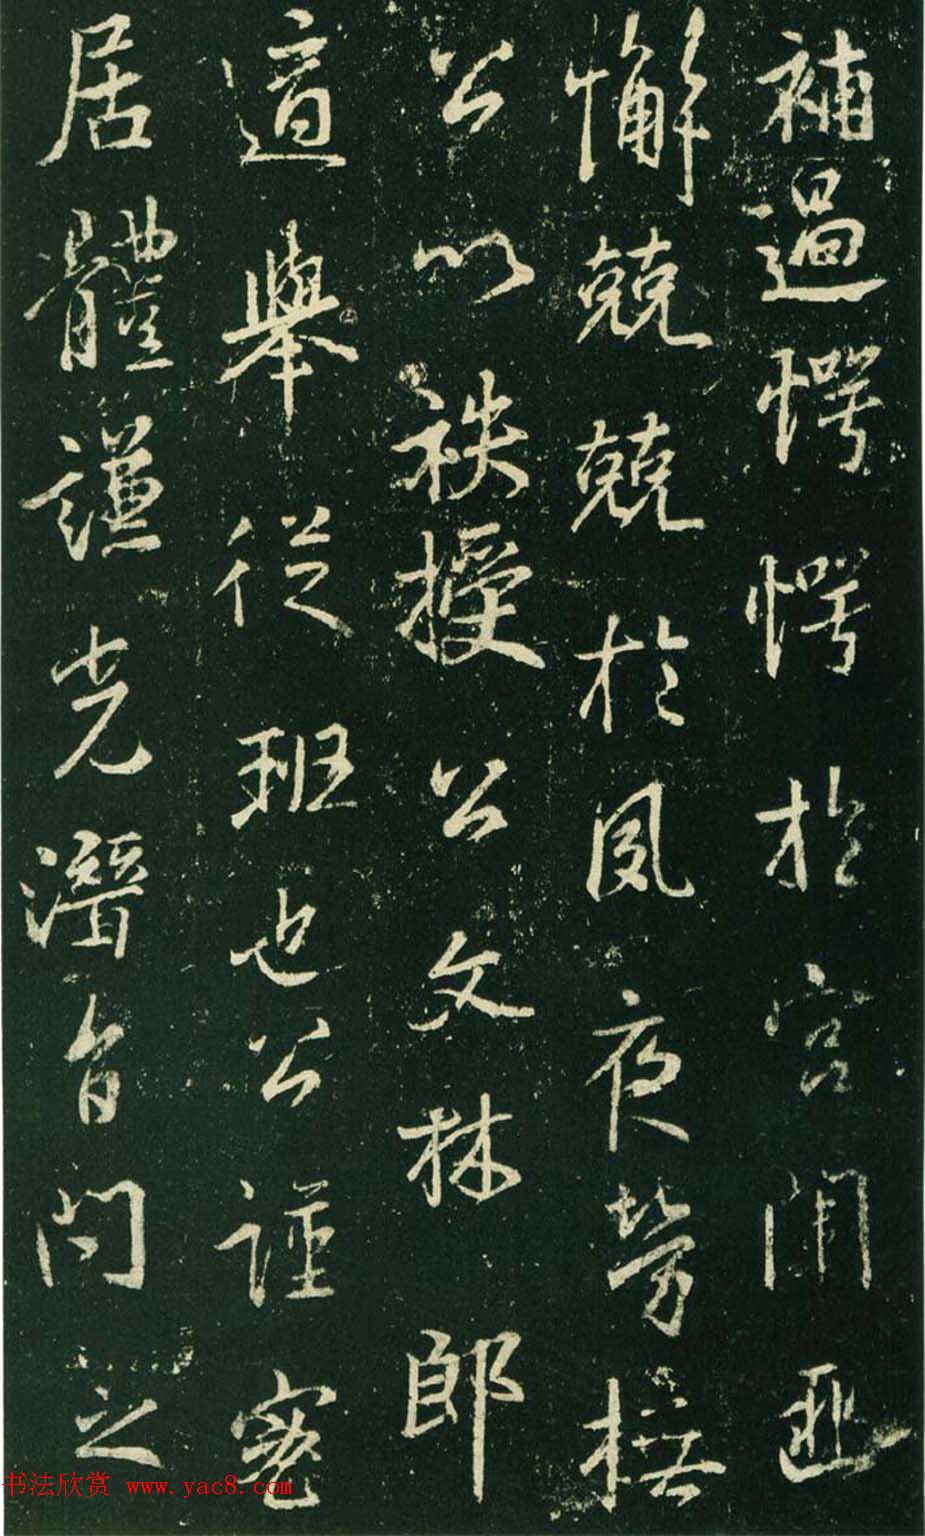 補過愕愕於宮闈匪
懈兢兢於夙夜勞
公以秩授公文林郎
適舉從班也公謹密
居體謙光潛旨問之
书法欣赏 www.yac8.com